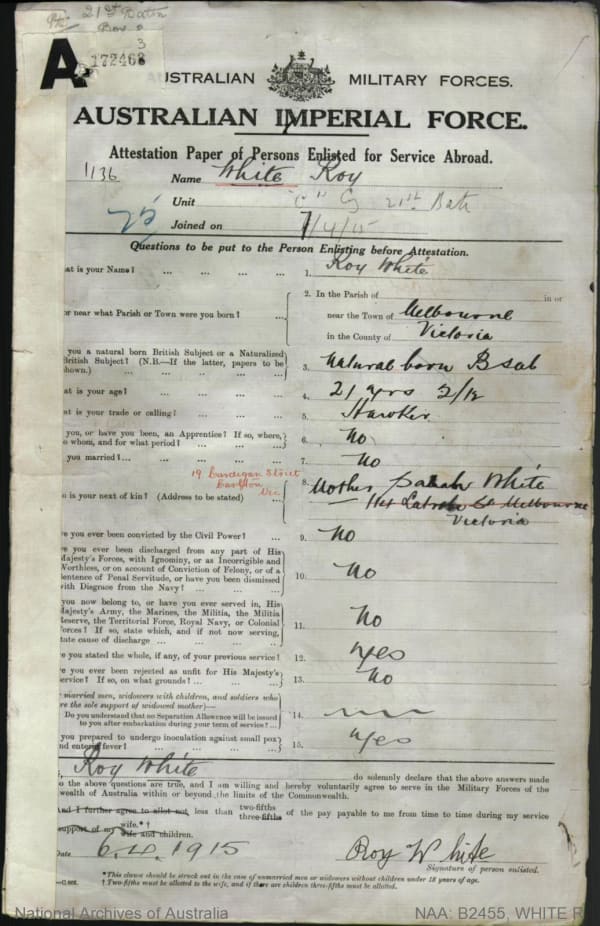 Pte. 21st Battn
3
172468
A
AUSTRALIAN MILITARY FORCES.
AUSTRALIAN IMPERIAL FORCE.
Attestation Paper of Persons Enlisted for Service Abroad.
1136 Name White Roy
Unit "C" Cy 21st Batn
Joined on 7/4/15
Questions to be put to the Person Enlisting before Attestation.
at is your Name? ... ... ... ... 1. Roy White
2. In the Parish of in or
or near what Parish or Town were you born? ... near the Town of Melbourne
in the County of Victoria
you a natural born British Subject or a Naturalized
British Subject? (N.B.—If the latter, papers to be 3. Natural born B sub
shown.) ... ... ... ... ...
at is your age? ... ... ... ... 4. 21 yrs 2/12
at is your trade or calling? ... ... ... 5. Hawker
you, or have you been, an Apprentice? If so, where, 6. No
o whom, and for what period? ... ... ...
you married? ... ... ... ... 7. No
19 Cardigan Street
Carlton
Vic
8. Mother Sarah White
o is your next of kin? (Address to be stated) ... Latrobe St Melbourne
Victoria
e you ever been convicted by the Civil Power? ... 9. No
e you ever been discharged from any part of His
Majesty's Forces, with Ignominy, or as Incorrigible and
Worthless, or on account of Conviction of Felony, or of a 10. No
entence of Penal Servitude, or have you been dismissed
with Disgrace from the Navy? ... ... ...
you now belong to, or have you ever served in, His
Majesty's Army, the Marines, the Militia, the Militia
Reserve, the Territorial Force, Royal Navy, or Colonial 11. No
Forces? If so, state which, and if not now serving,
state cause of discharge ... ... ... ...
e you stated the whole, if any, of your previous service? 12. Yes
e you ever been rejected as unfit for His Majesty's 13. No
ervice? If so, on what grounds? ... ... ...
married men, widowers with children, and soldiers who
re the sole support of widowed mother)—
Do you understand that no Separation Allowance will be issued 14.
to you after embarkation during your term of service? ...
you prepared to undergo inoculation against small pox 15. Yes
nd enteric fever? ... ... ... ...
I, Roy White do solemnly declare that the above answers made
to the above questions are true, and I am willing and hereby voluntarily agree to serve in the Military Forces of the
wealth of Australia within or beyond the limits of the Commonwealth.
And I further agree to allot not less than two-fifths
three-fifths of the pay payable to me from time to time during my service
support of my wife.*†
wife and children.
Date 6.4.1915 Roy White
Signature of person enlisted.
*This clause should be struck out in the case of unmarried men or widowers without children under 18 years of age.
† Two-fifths must be allotted to the wife, and if there are children three-fifths must be allotted.
National Archives of Australia NAA: B2455, WHITE R